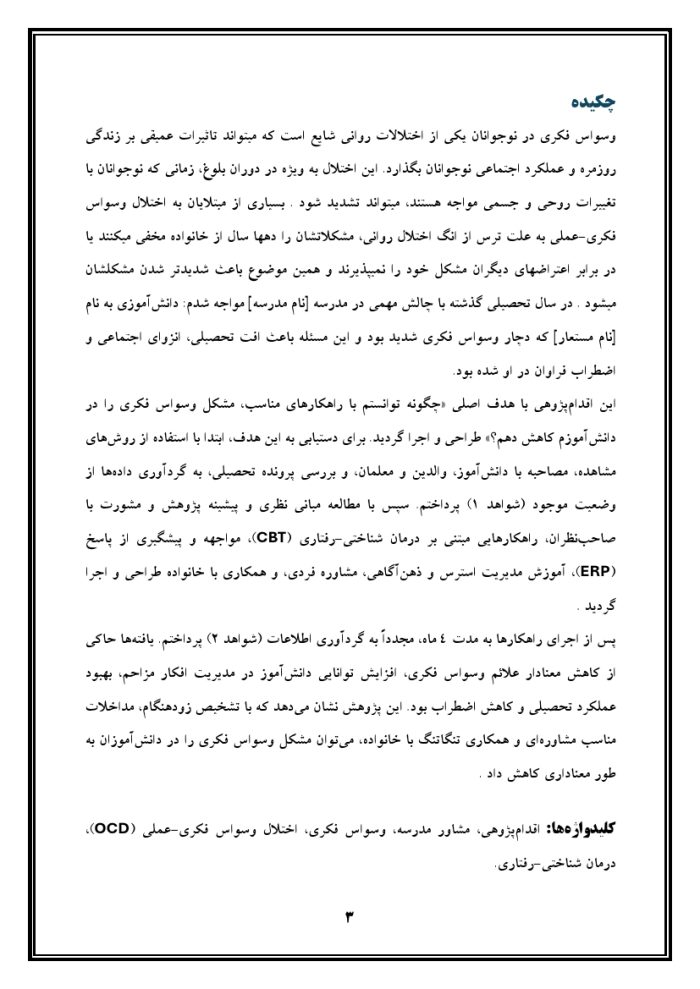 چکیده
وسواس فکری در نوجوانان یکی از اختلالات روانی شایع است که میتواند تاثیرات عمیقی بر زندگی
روزمره و عملکرد اجتماعی نوجوانان بگذارد. این اختلال به ویژه در دوران بلوغ، زمانی که نوجوانان با
تغییرات روحی و جسمی مواجه هستند، میتواند تشدید شود . بسیاری از مبتلایان به اختلال وسواس
فکری-عملی به علت ترس از انگ اختلال روانی، مشکلاتشان را دهها سال از خانواده مخفی میکنند یا
در برابر اعتراضهای دیگران مشکل خود را نمیپذیرند و همین موضوع باعث شدیدتر شدن مشکلشان
میشود . در سال تحصیلی گذشته با چالش مهمی در مدرسه [نام مدرسه] مواجه شدم: دانش‌آموزی به نام
[نام مستعار] که دچار وسواس فکری شدید بود و این مسئله باعث افت تحصیلی، انزوای اجتماعی و
اضطراب فراوان در او شده بود.
این اقدام‌پژوهی با هدف اصلی «چگونه توانستم با راهکارهای مناسب، مشکل وسواس فکری را در
دانش‌آموزم کاهش دهم؟» طراحی و اجرا گردید. برای دستیابی به این هدف، ابتدا با استفاده از روش‌های
مشاهده، مصاحبه با دانش‌آموز، والدین و معلمان، و بررسی پرونده تحصیلی، به گردآوری داده‌ها از
وضعیت موجود (شواهد ۱) پرداختم. سپس با مطالعه مبانی نظری و پیشینه پژوهش و مشورت با
صاحب‌نظران، راهکارهایی مبتنی بر درمان شناختی-رفتاری (CBT)، مواجهه و پیشگیری از پاسخ
(ERP)، آموزش مدیریت استرس و ذهن‌آگاهی، مشاوره فردی، و همکاری با خانواده طراحی و اجرا
گردید .
پس از اجرای راهکارها به مدت ٤ ماه، مجدداً به گردآوری اطلاعات (شواهد ۲) پرداختم. یافته‌ها حاکی
از کاهش معنادار علائم وسواس فکری، افزایش توانایی دانش‌آموز در مدیریت افکار مزاحم، بهبود
عملکرد تحصیلی و کاهش اضطراب بود. این پژوهش نشان می‌دهد که با تشخیص زودهنگام، مداخلات
مناسب مشاوره‌ای و همکاری تنگاتنگ با خانواده، می‌توان مشکل وسواس فکری را در دانش‌آموزان به
طور معناداری کاهش داد .
کلیدواژه‌ها: اقدام‌پژوهی، مشاور مدرسه، وسواس فکری، اختلال وسواس فکری-عملی (OCD)،
درمان شناختی-رفتاری.
۳